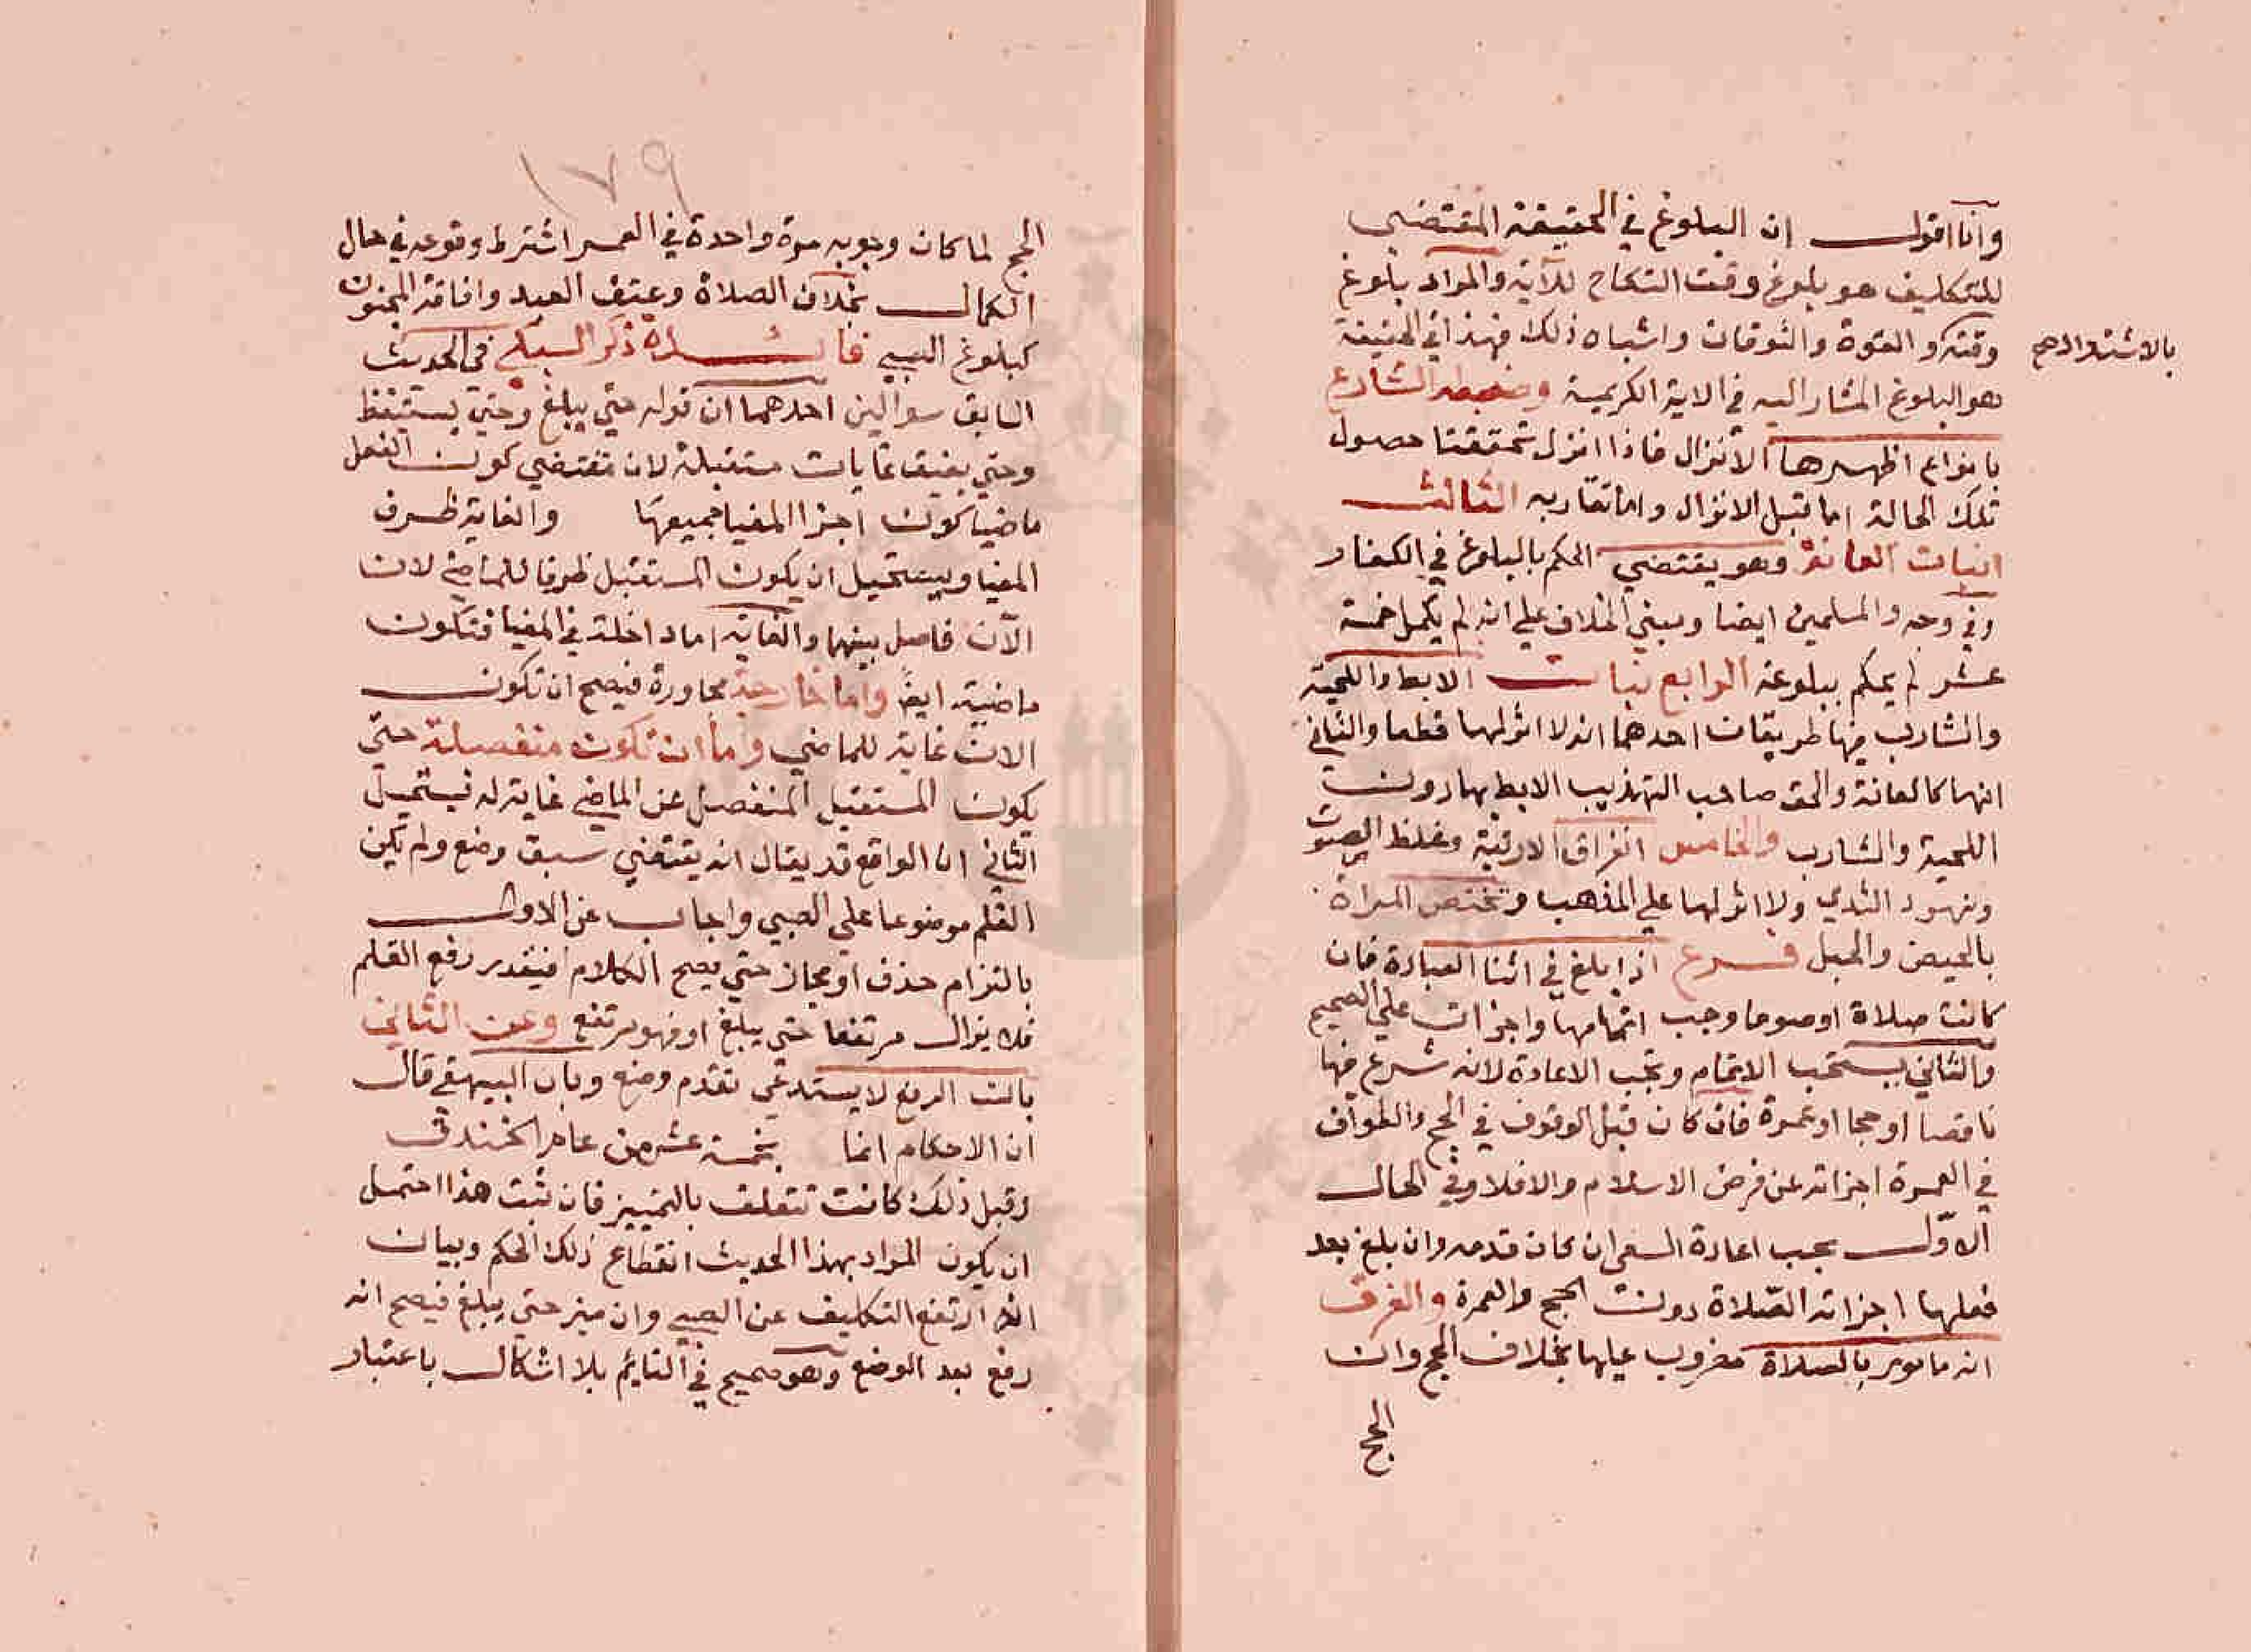 وانا اقول ان البلوغ في الحقيقة المقتضي
للتكليف هو بلوغ وقت النكاح للآية والمراد بلوغ
وقته والقوة والتوقان واشباه ذلك فهذا في الحقيقة
بالاشتداد صح
هو البلوغ المشار اليه في الاية الكريمة وضبطه الشارع
بانواع اظهرها الانزال فاذا انزل تحققنا حصول
تلك الحالة اما قبل الانزال واما تقاربه الثالث
انبات العانة وهو يقتضي الحكم بالبلوغ في الكفار
وفي وجه والمسلمين ايضا ومبني الخلاف علي انه لم يكمل خمسة
عشر لم يحكم ببلوغه الرابع نبات الابط واللحية
والشارب فيها طريقان احدهما انه لا اثر لها قطعا والثاني
انها كالعانة والحق صاحب التهذيب الابط بها دون
اللحية والشارب والخامس انفراق الارنبة وغلظ الصوت
ونهود الثدي ولا اثر لها علي المذهب وتختص المراة
بالحيض والحبل فرع اذا بلغ في اثنا العبادة فان
كانت صلاة او صوما وجب اتمامها واجزات علي الصحيح
والثاني يستحب الاتمام وتجب الاعادة لانه شرع فيها
ناقصا او حجا او عمرة فان كان قبل الوقوف في الحج والطواف
في العمرة اجزاته عن فرض الاسلام والا فلا وفي الحال
الاول يجب اعادة السعي ان كان قدمه وان بلغ بعد
فعلها اجزاته الصلاة دون الحج والعمرة والفرق
انه مامور بالصلاة مضروب عليها بخلاف الحج وان
الحج
١٧٩
الحج لما كان وجوبه مرة واحدة في العمر اشترط وقوعه في حال
الكمال بخلاف الصلاة وعتق العبد وافاقة المجنون
كبلوغ الصبي فائدة ذكر السبكي في الحديث
السابق سوالين احدهما ان قوله حتي يبلغ وحتي يستيقظ
وحتي يفيق غايات مستقبلة لان تقتضي كون الفعل
ماضيا كون اجزا المغيا جميعها والغاية ظرف
المغيا ويستحيل ان يكون المستقبل ظرفا للماضي لان
الآن فاصل بينهما والغاية اما داخلة في المغيا فتكون
ماضية ايضا واما خارجة مجاورة فيصح ان تكون
الان غاية للماضي واما ان تكون منفصلة حتي
يكون المستقبل المنفصل عن الماضي غاية له فيستحيل
الثاني ان الواقع قد يقال انه يقتضي سبق وضع ولم يكن
القلم موضوعا علي الصبي واجاب عن الاول
بالتزام حذف او مجاز حتي يصح الكلام فيقدر رفع القلم
فلا يزال مرتفعا حتي يبلغ او فهو مرتفع وعن الثاني
بان الرفع لا يستدعي تقدم وضع وبان البيهقي قال
ان الاحكام انما بخمسة عشر من عام الخندق
وقبل ذلك كانت تتعلق بالتمييز فان ثبت هذا احتمل
ان يكون المراد بهذا الحديث انقطاع ذلك الحكم وبيان
انه ارتفع التكليف عن الصبي وان ميز حتي يبلغ فيصح انه
رفع بعد الوضع وهو صحيح في النايم بلا اشكال باعتبار